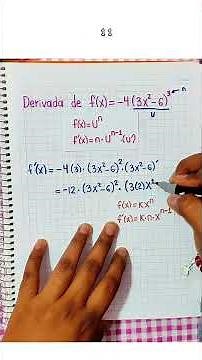 Derivada de f(x) = -4(3x²-6)³ ← n
u
f(x) = Uⁿ
f'(x) = n · Uⁿ⁻¹ · (u')
f'(x) = -4(3) · (3x²-6)² · (3x²-6)'
= -12 · (3x²-6)² · (3(2)X²⁻
f(x) = K·xⁿ
f'(x) = K·n·xⁿ⁻¹